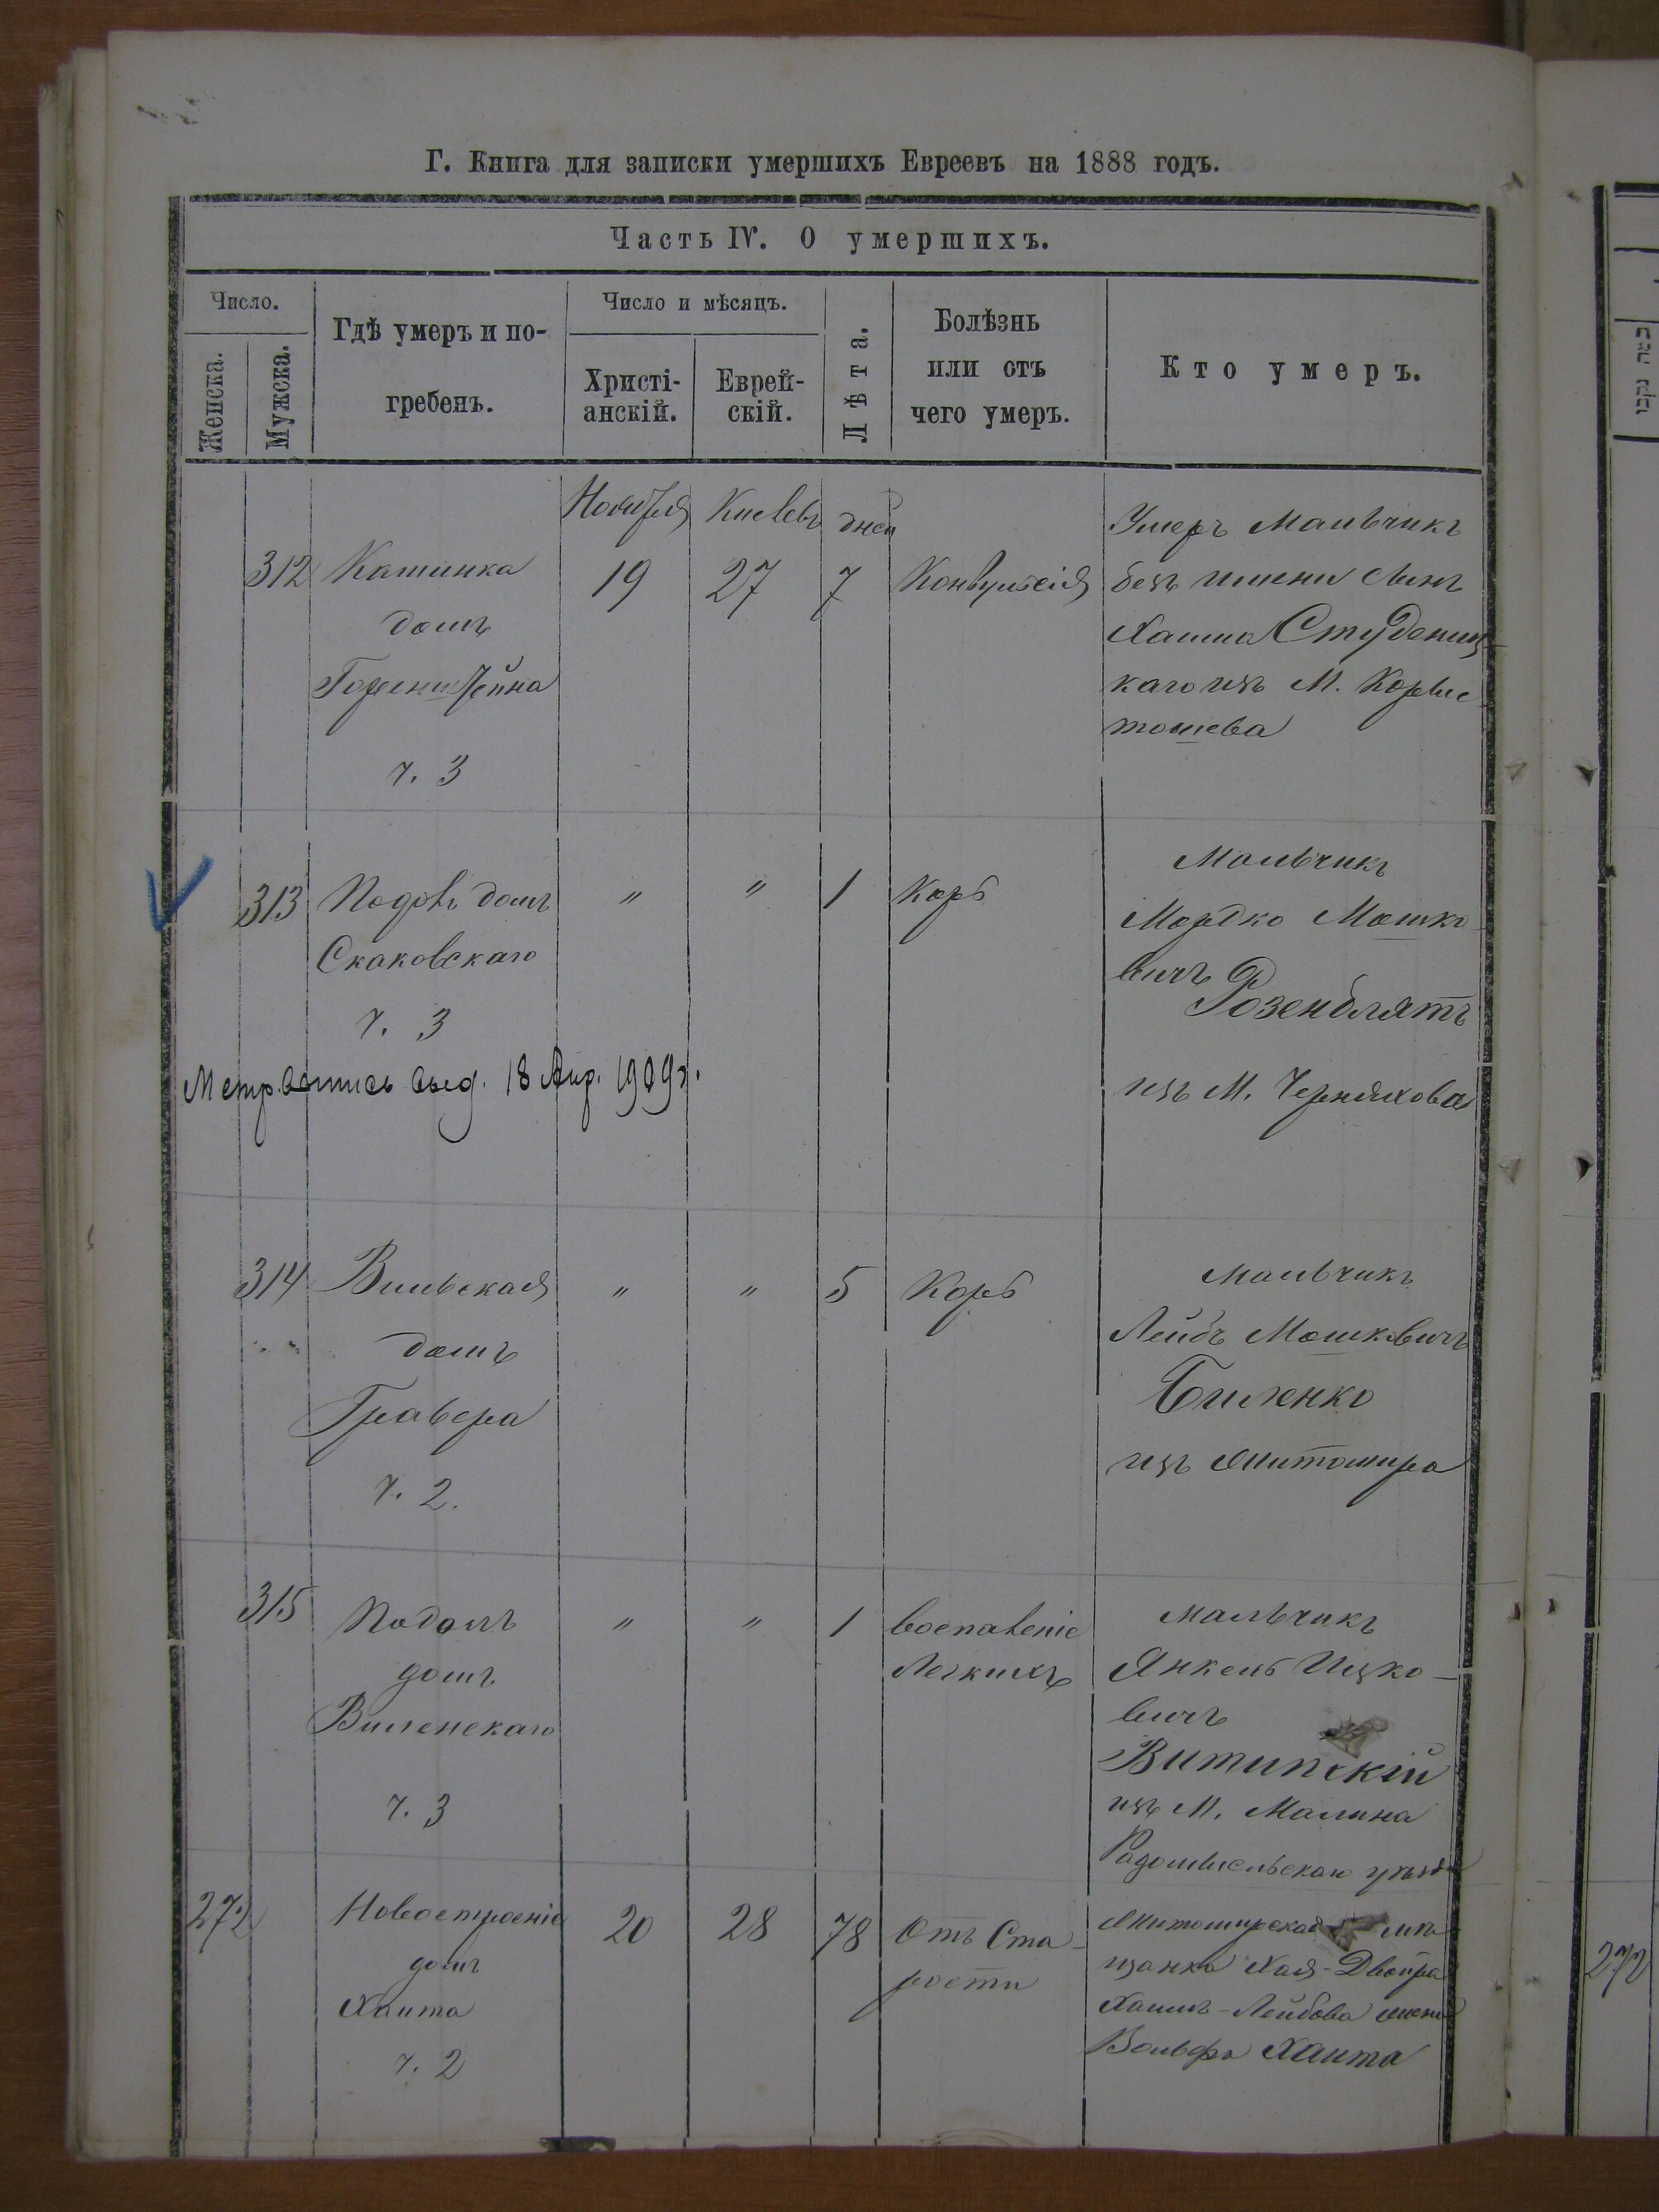 Г. Книга для записки умершихъ Евреевъ на 1888 годъ.
Часть IV. О умершихъ.
Число.
Женска.
Мужска.
Гдѣ умеръ и по-
гребенъ.
Число и мѣсяцъ.
Христі-
анскій.
Еврей-
скій.
Лѣта.
Болѣзнь
или отъ
чего умеръ.
Кто умеръ.
Ноября
Кислевъ
дней
312
Катинка
домъ
ч. 3
19
27
7
Конвульсія
Умеръ Мальчикъ
безъ имени Сынъ
Хаима Студениц-
каго изъ М. Коры
тошева
313
домъ
Скаковскаго
ч. 3
"
"
1
Корь
Мальчикъ
Мордко Мошко-
вичъ
Розенблятъ
изъ М. Черняхова
выд. 18 Апр. 1909 г.
314
Вильская
домъ
Гравера
ч. 2.
"
"
5
Корь
Мальчикъ
Лейбъ Мошковичъ
Биленко
изъ Житомира
315
Подолъ
домъ
Виленскаго
ч. 3
"
"
1
воспаленіе
Легкихъ
мальчикъ
Янкель Ицко-
вичъ
Витипскій
изъ М. Малина
Радомысльскаго уѣзда
272
Новостроеніе
домъ
Хаита
ч. 2
20
28
78
Отъ Ста-
рости
Житомирская мѣ-
щанка Хая-Двойра
Хаимъ-Лейбова жена
Вольфа Хаита
272